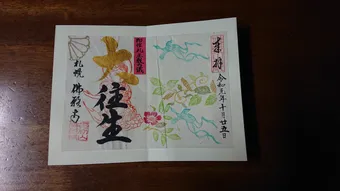 奉拝
令和元年十月廿五日
大
往生
札幌
佛願寺